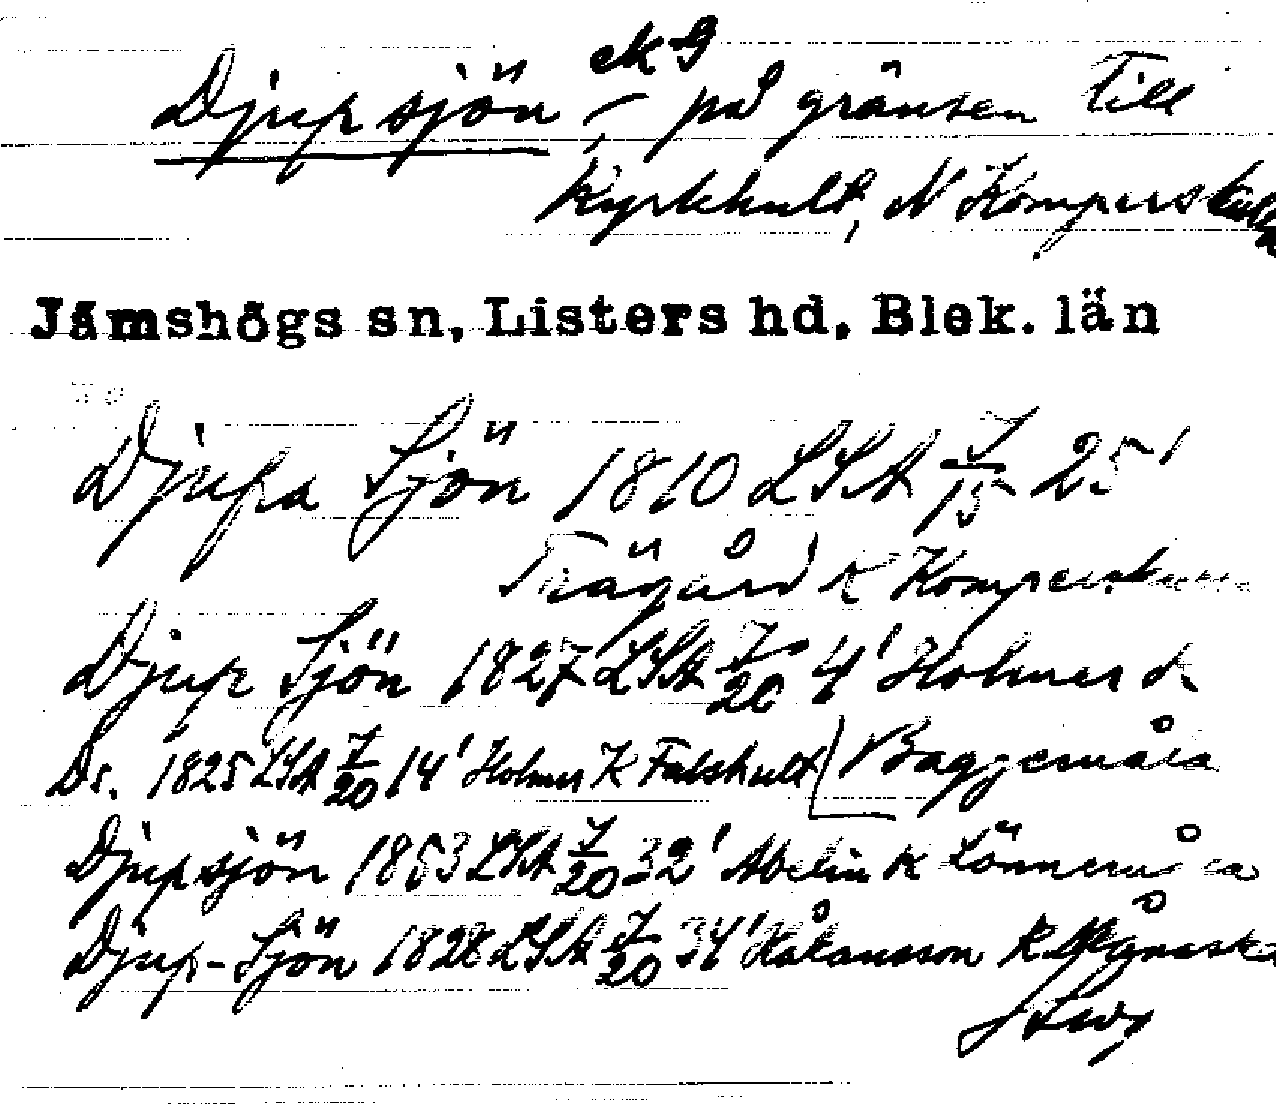 ekG
Djupsjön, på gränsen till
Kyrkhult, N Komperskulla
Jämshögs sn, Listers hd, Blek. län
Djupa Sjön 1810 LSA J/15 25'
Trägård K Komperskulla
Djup Sjön 1827 LSA J/20 4' Holmer K
Ds. 1825 LSA J/20 14' Holmer K Falskhult [Baggemåla
Djupsjön 1853 LSA J/20 32' Abelin K Lönnemåla
Djup-Sjön 1828 LSA J/20 34' Håkansson K